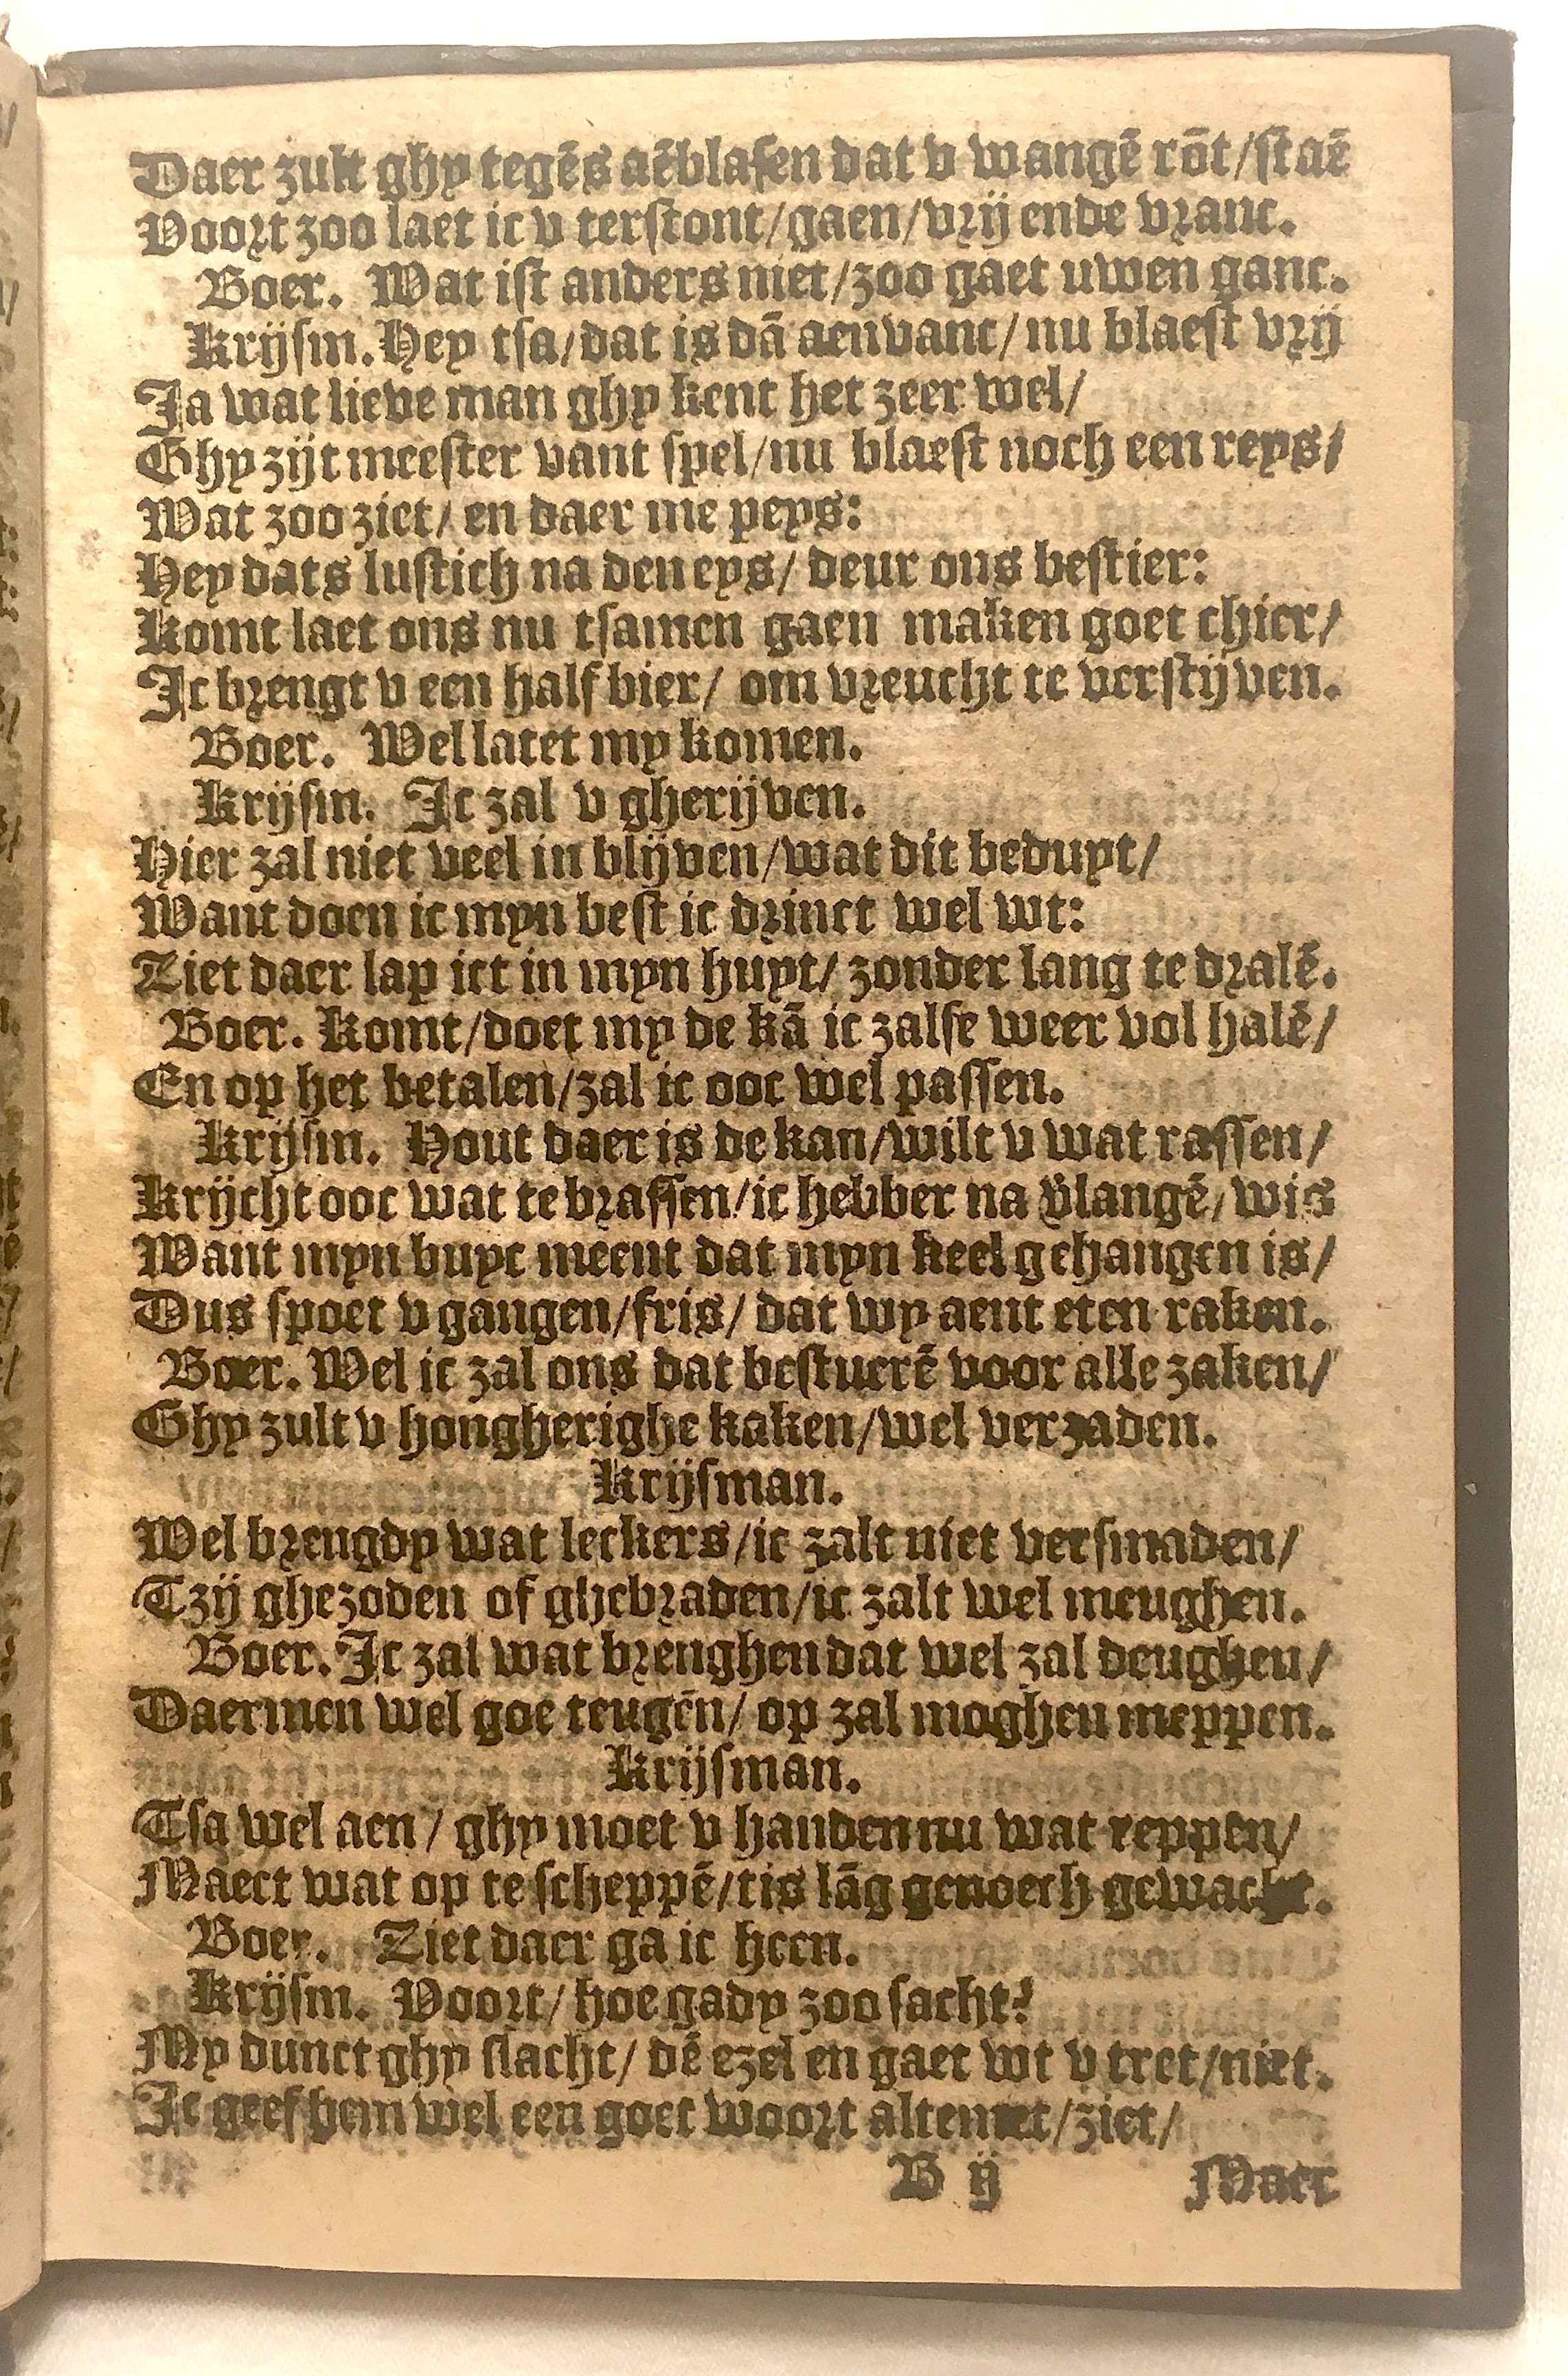 Daer zult ghy tegēs aēblasen dat v wangē rōt/staē
Voort zoo laet ic v terstont/gaen/vrij ende vranc.
Boer. Wat ist anders niet/zoo gaet uwen ganc.
Krijsm. Hey tsa/dat is dā aenvanc/nu blaest vrij
Ja wat lieve man ghy kent het zeer wel/
Ghy zijt meester vant spel/nu blaest noch een reys/
Wat zoo ziet/ en daer me peys:
Hey dats lustich na den eys/ deur ons bestier:
Komt laet ons nu tsamen gaen maken goet chier/
Ic brengt v een half bier/ om vreucht te verstijven.
Boer. Wel latet my komen.
Krijsm. Ic zal v gherijven.
Hier zal niet veel in blijven/wat dit beduyt/
Want doen ic myn best ic drinct wel wt:
Ziet daer lap ict in myn huyt/ zonder lang te dralē.
Boer. Komt/doet my de kā ic zalse weer vol halē/
En op het betalen/zal ic ooc wel passen.
Krijsm. Hout daer is de kan/wilt v wat rassen/
Krijcht ooc wat te brassen/ic hebber na v̄langē/wis
Want myn buyc meent dat myn keel gehangen is/
Dus spoet v gangen/fris/ dat wy aent eten raken.
Boer. Wel ic zal ons dat bestuerē voor alle zaken/
Ghy zult v hongherighe kaken/wel verzaden.
Krijsman.
Wel brengdy wat leckers/ic zalt niet versmaden/
Tzij ghezoden of ghebraden/ic zalt wel meughen.
Boer. Ic zal wat brenghen dat wel zal deughen/
Daermen wel goe teugen/ op zal moghen meppen.
Krijsman.
Tsa wel aen/ ghy moet v handen nu wat reppen/
Maect wat op te scheppē/tis lāg genoech gewacht.
Boer. Ziet daer ga ic heen.
Krijsm. Voort/ hoe gady zoo sacht?
My dunct ghy slacht/ dē ezel en gaet wt v tret/niet.
Ic geef hem wel een goet woort altemet/ziet/
B ij Maer